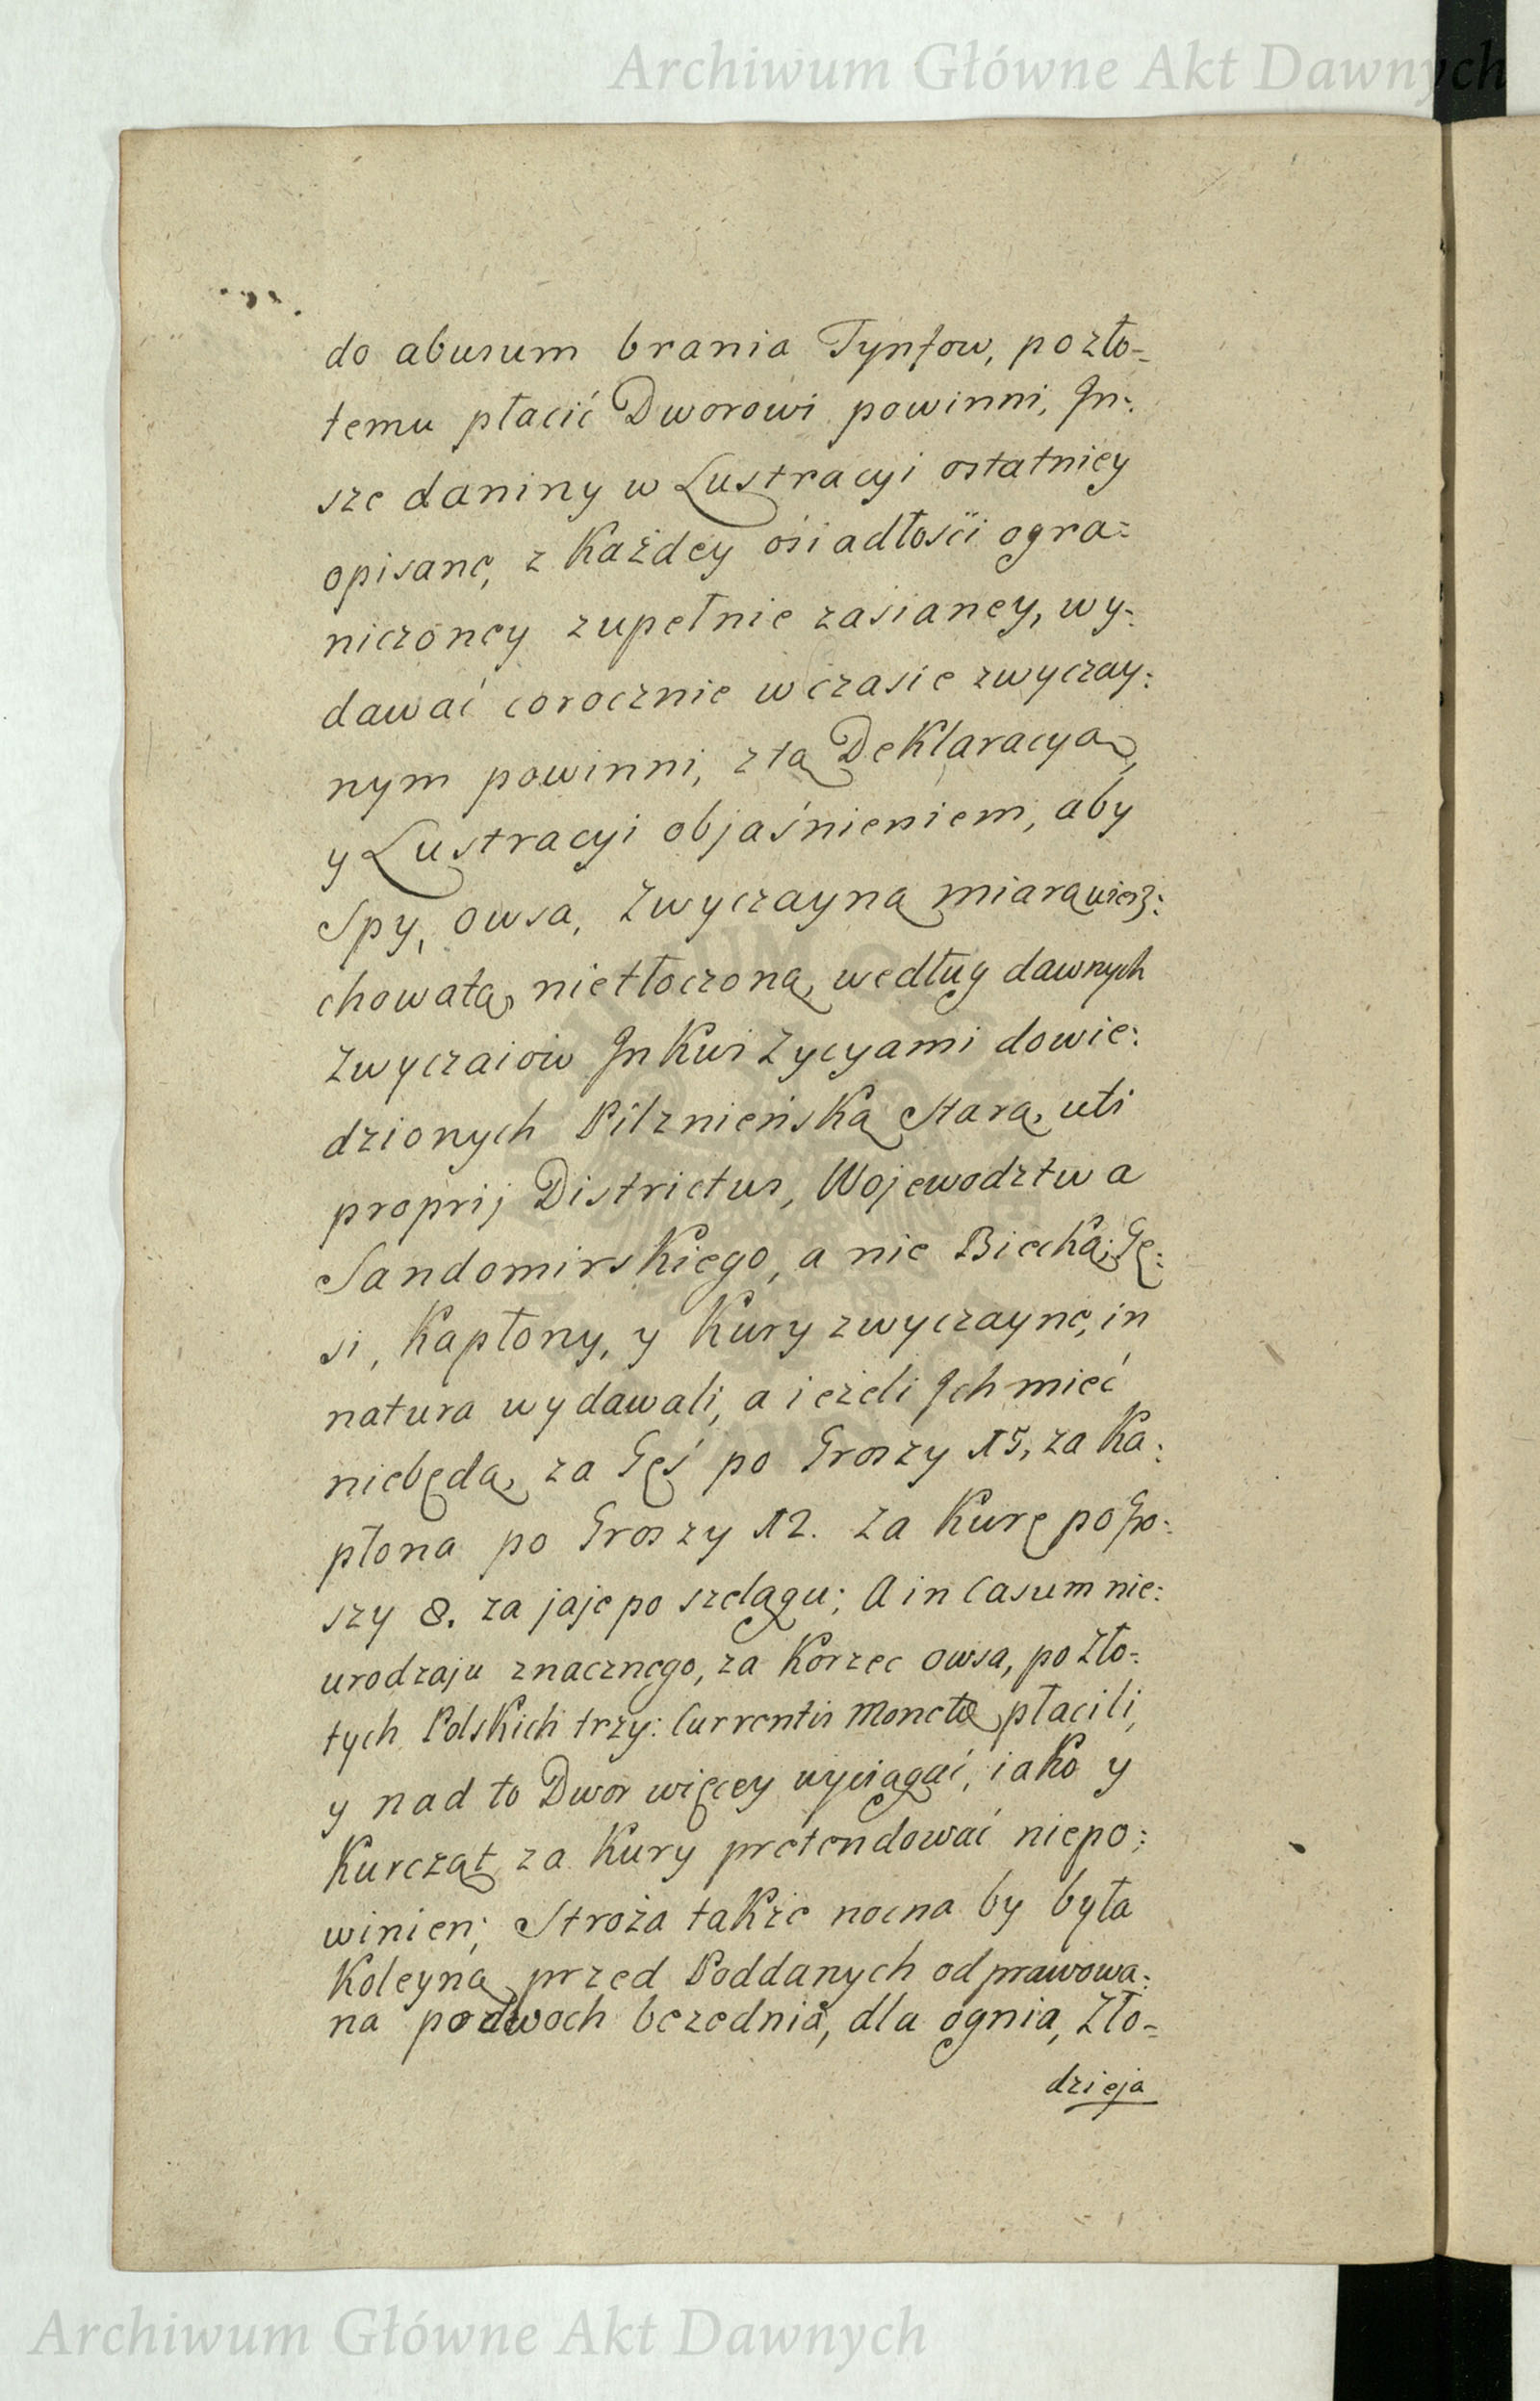 Archiwum Główne Akt Dawnych
do abusum brania Tynfow, po zło=
temu płacić Dworowi powinni, Jn:
sze daniny w Lustracyi ostatniey
opisane, z Każdey ośiadłosći ogra=
niczoney zupełnie zasianey, wy:
dawać corocznie w czasie zwyczay:
nym powinni, z tą Deklaracyą,
y Lustracyi objaśnieniem, aby
Spy, owsa, Zwyczayną miarą wierz:
chowatą, nietłoczoną, według dawnych
Zwyczaiow JnKwiZycyami dowie:
dzionych Pilznieńską Starą, uti
proprij Districtus, Wojewodztwa
Sandomirskiego, a nie Biecką; Gę:
si, Kapłony, y Kury zwyczayne, in
natura wydawali, a ieżeli Jch mieć
niebędą, za Gęś po Groszy 15, za Ka:
płona po Groszy 12. za Kurę po Gro:
szy 8. za jaje po szelągu; A in Casum nie:
urodzaju znacznego, za Korzec owsa, po Zło:
tych Polskich trzy: Currentis Monetæ płacili,
y nad to Dwor więcey wyciągać, iako y
Kurcząt za Kury pretendować niepo:
winien; Stroża także nocna by była
Koleyną przed Poddanych odprawowa:
na po dwoch bezednia, dla ognia, Zło=
dzieja
Archiwum Główne Akt Dawnych